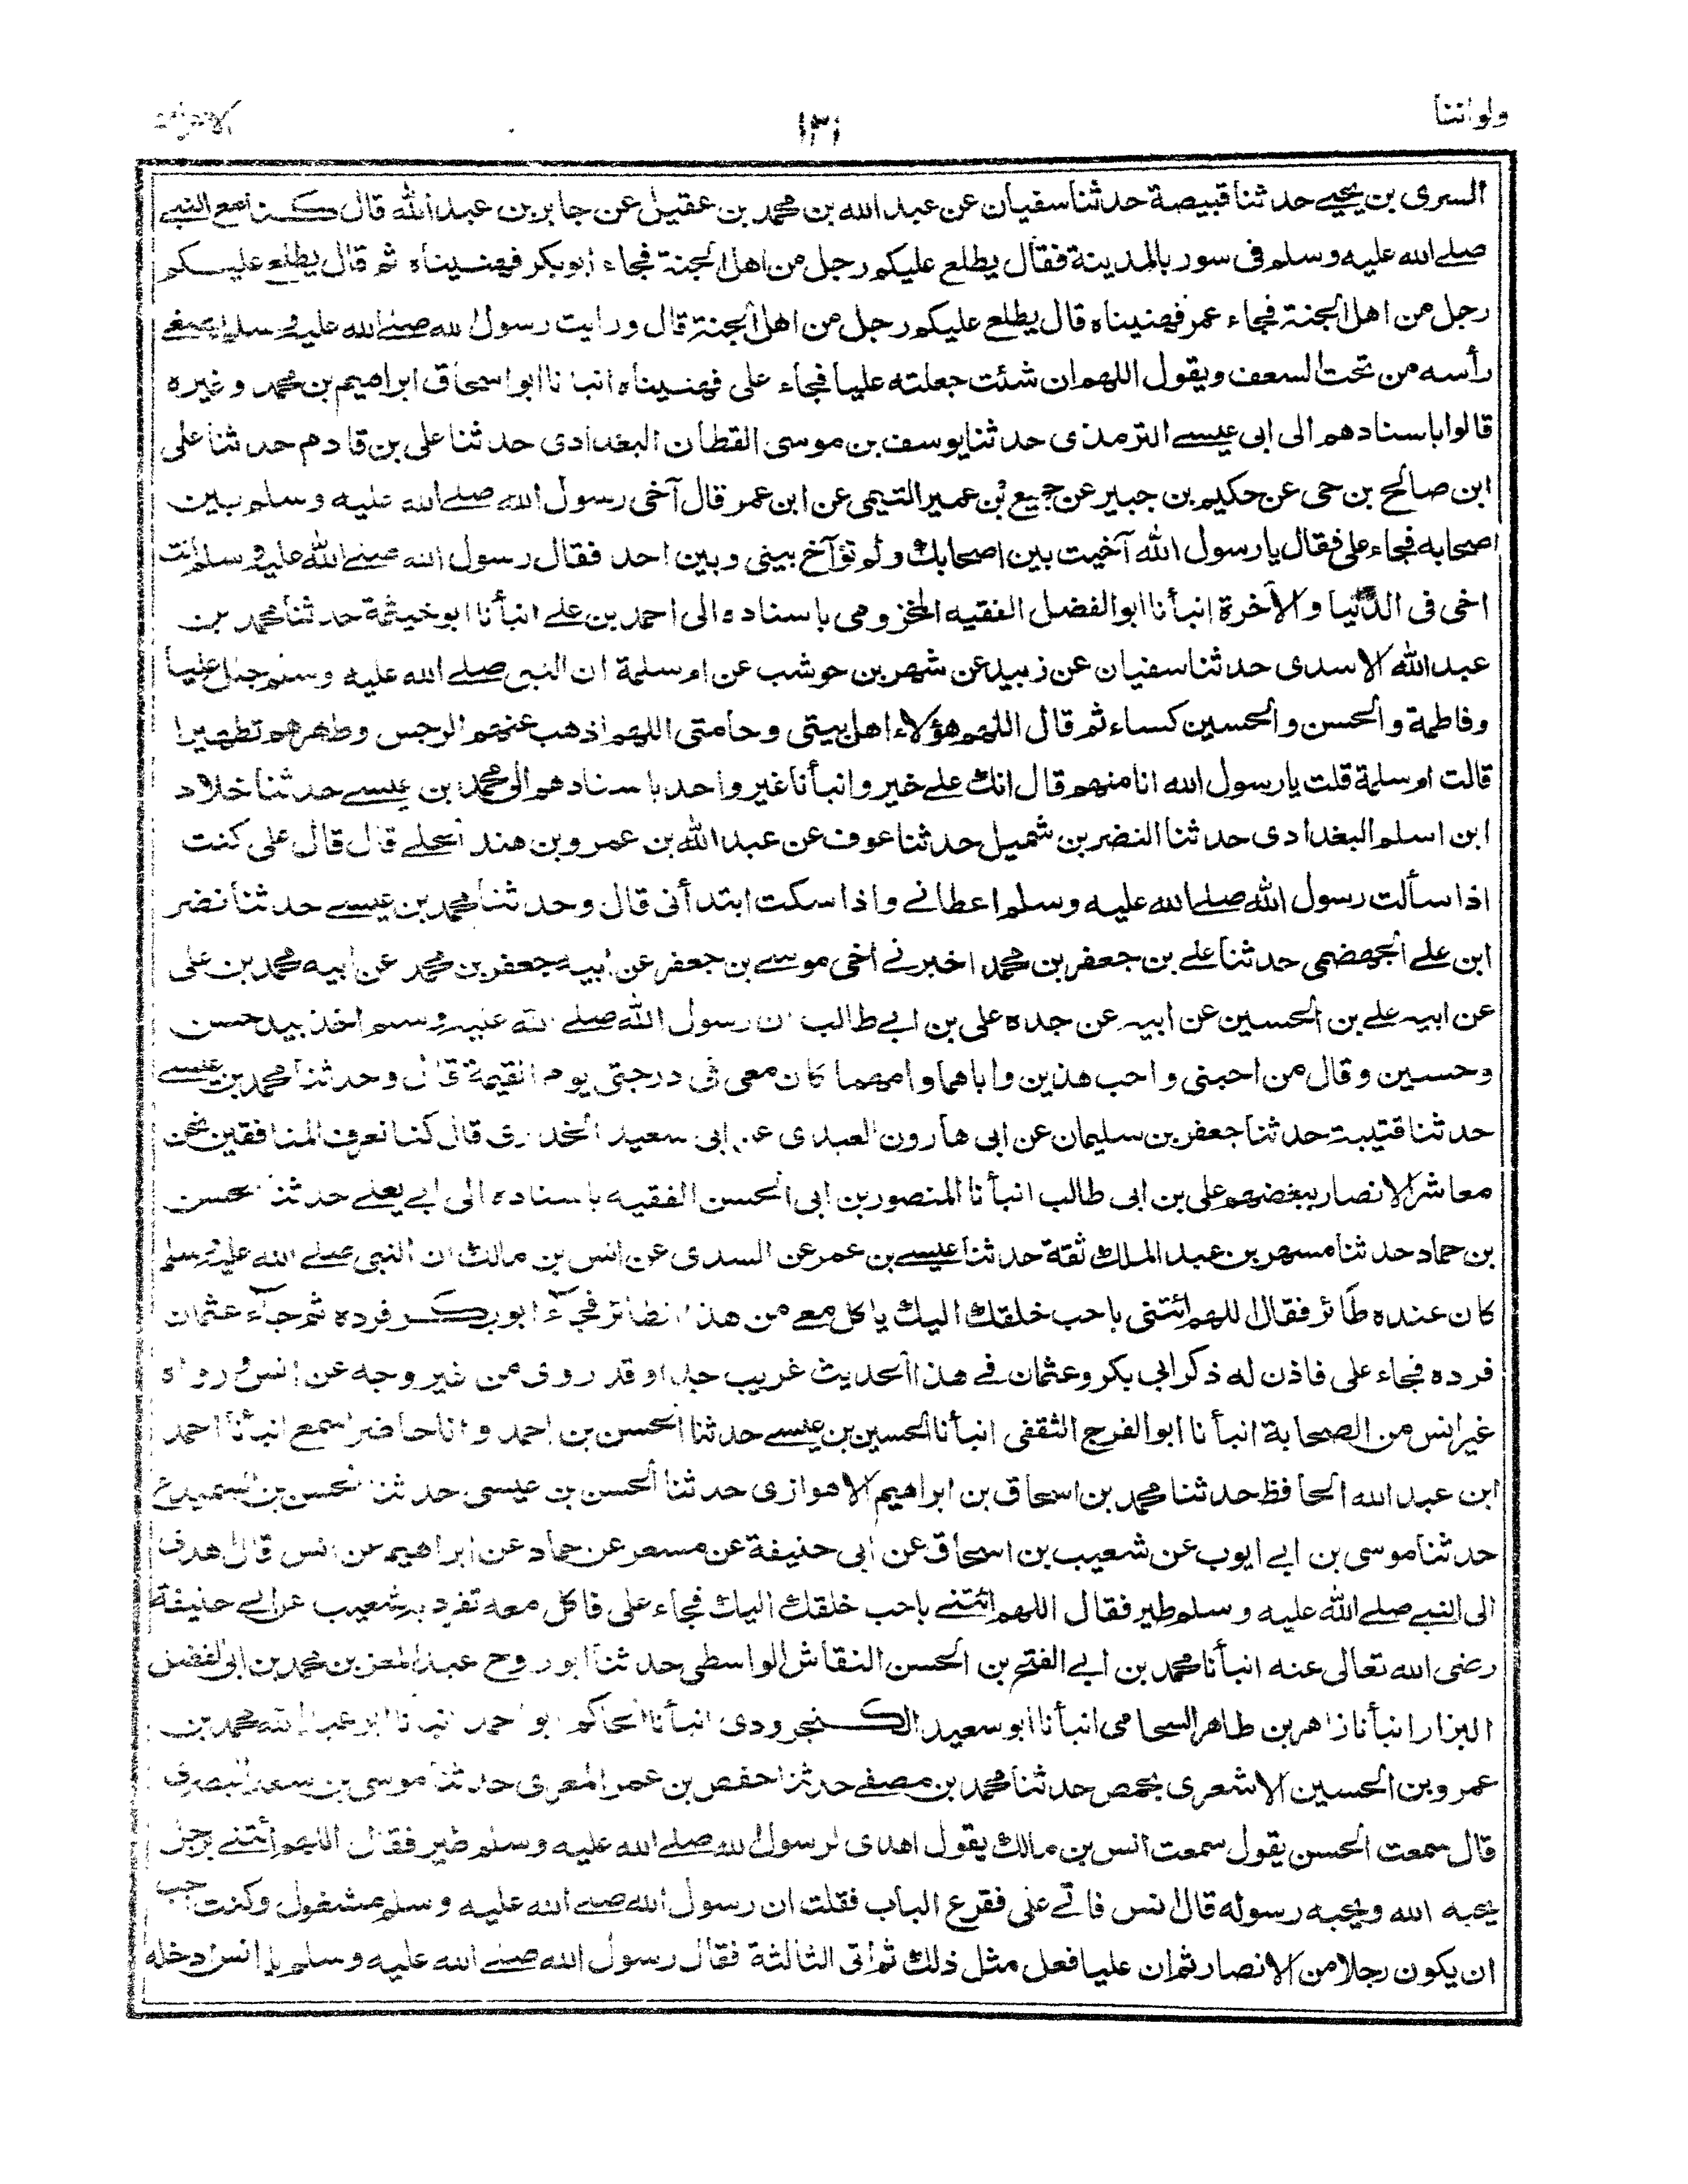 ولو اننا
١٣١
السرى بن يحيى حدثنا قبيصة حدثنا سفيان عن عبد الله بن محمد بن عقيل عن جابر بن عبد الله قال كنا مع النبي
صلى الله عليه وسلم فى سور بالمدينة فقال يطلع عليكم رجل من اهل الجنة فجاء ابو بكر فهنيناه ثم قال يطلع عليكم
رجل من اهل الجنة فجاء عمر فهنيناه قال يطلع عليكم رجل من اهل الجنة قال ورايت رسول الله صلى الله عليه وسلم يصغى
رأسه من تحت السعف ويقول اللهم ان شئت جعلته عليا فجاء على فهنيناه انبانا ابو اسحاق ابراهيم بن محمد وغيره
قالوا باسنادهم الى ابى عيسى الترمذى حدثنا يوسف بن موسى القطان البغدادى حدثنا على بن قادم حدثنا على
ابن صالح بن حى عن حكيم بن جبير عن جميع بن عمير التيمى عن ابن عمر قال آخى رسول الله صلى الله عليه وسلم بين
اصحابه فجاء على فقال يا رسول الله آخيت بين اصحابك ولم تؤآخ بينى وبين احد فقال رسول الله صلى الله عليه وسلم انت
اخى فى الدنيا والآخرة انبأنا ابو الفضل الفقيه المخزومى باسناده الى احمد بن على انبأنا ابو خيثمة حدثنا محمد بن
عبد الله الاسدى حدثنا سفيان عن زبيد عن شهر بن حوشب عن ام سلمة ان النبى صلى الله عليه وسلم جلل عليا
وفاطمة والحسن والحسين كساء ثم قال اللهم هؤلاء اهل بيتى وحامتى اللهم اذهب عنهم الرجس وطهرهم تطهيرا
قالت ام سلمة قلت يا رسول الله انا منهم قال انك على خير وانبأنا غير واحد باسنادهم الى محمد بن عيسى حدثنا خلاد
ابن اسلم البغدادى حدثنا النضر بن شميل حدثنا عوف عن عبد الله بن عمرو بن هند الجملى قال قال على كنت
اذا سألت رسول الله صلى الله عليه وسلم اعطانى واذا سكت ابتدأنى قال وحدثنا محمد بن عيسى حدثنا نضر
ابن على الجهضمى حدثنا على بن جعفر بن محمد اخبرنى اخى موسى بن جعفر عن ابيه جعفر بن محمد عن ابيه محمد بن على
عن ابيه على بن الحسين عن ابيه عن جده على بن ابى طالب ان رسول الله صلى الله عليه وسلم اخذ بيد حسن
وحسين وقال من احبنى واحب هذين واباهما وامهما كان معى فى درجتى يوم القيمة قال وحدثنا محمد بن عيسى
حدثنا قتيبة حدثنا جعفر بن سليمان عن ابى هارون العبدى عن ابى سعيد الخدرى قال كنا نعرف المنافقين نحن
معاشر الانصار ببغضهم على بن ابى طالب انبأنا المنصور بن ابى الحسن الفقيه باسناده الى ابى يعلى حدثنا الحسن
بن حماد حدثنا مسهر بن عبد الملك ثقة حدثنا عيسى بن عمر عن السدى عن انس بن مالك ان النبى صلى الله عليه وسلم
كان عنده طائر فقال اللهم ائتنى باحب خلقك اليك ياكل معى من هذا الطائر فجآء ابو بكر فرده ثم جآء عثمان
فرده فجاء على فاذن له ذكر ابى بكر وعثمان فى هذا الحديث غريب جدا وقد روى من غير وجه عن انس ورواه
غير انس من الصحابة انبأنا ابو الفرج الثقفى انبأنا الحسين بن عيسى حدثنا الحسن بن احمد وانا حاضر اسمع انبأنا احمد
ابن عبد الله الحافظ حدثنا محمد بن اسحاق بن ابراهيم الاهوازى حدثنا الحسن بن عيسى حدثنا الحسن بن السميدع
حدثنا موسى بن ابى ايوب عن شعيب بن اسحاق عن ابى حنيفة عن مسعر عن حماد عن ابراهيم عن انس قال اهدى
الى النبى صلى الله عليه وسلم طير فقال اللهم ائتنى باحب خلقك اليك فجاء على فاكل معه تفرد به شعيب عن ابى حنيفة
رضى الله تعالى عنه انبأنا محمد بن ابى الفتح بن الحسن النقاش الواسطى حدثنا ابو روح عبد المعز بن محمد بن ابى الفضل
البزار انبأنا زاهر بن طاهر السحامى انبأنا ابو سعيد الكنجرودى انبأنا الحاكم ابو احمد انبأنا ابو عبد الله محمد بن
عمرو بن الحسين الاشعرى بحمص حدثنا محمد بن مصفى حدثنا حفص بن عمر المعرى حدثنا موسى بن سعد البصرى
قال سمعت الحسن يقول سمعت انس بن مالك يقول اهدى لرسول الله صلى الله عليه وسلم طير فقال اللهم ائتنى برجل
يحبه الله ويحبه رسوله قال انس فاتى على فقرع الباب فقلت ان رسول الله صلى الله عليه وسلم مشغول وكنت احب
ان يكون رجلا من الانصار ثم ان عليا فعل مثل ذلك ثم اتى الثالثة فقال رسول الله صلى الله عليه وسلم يا انس ادخله